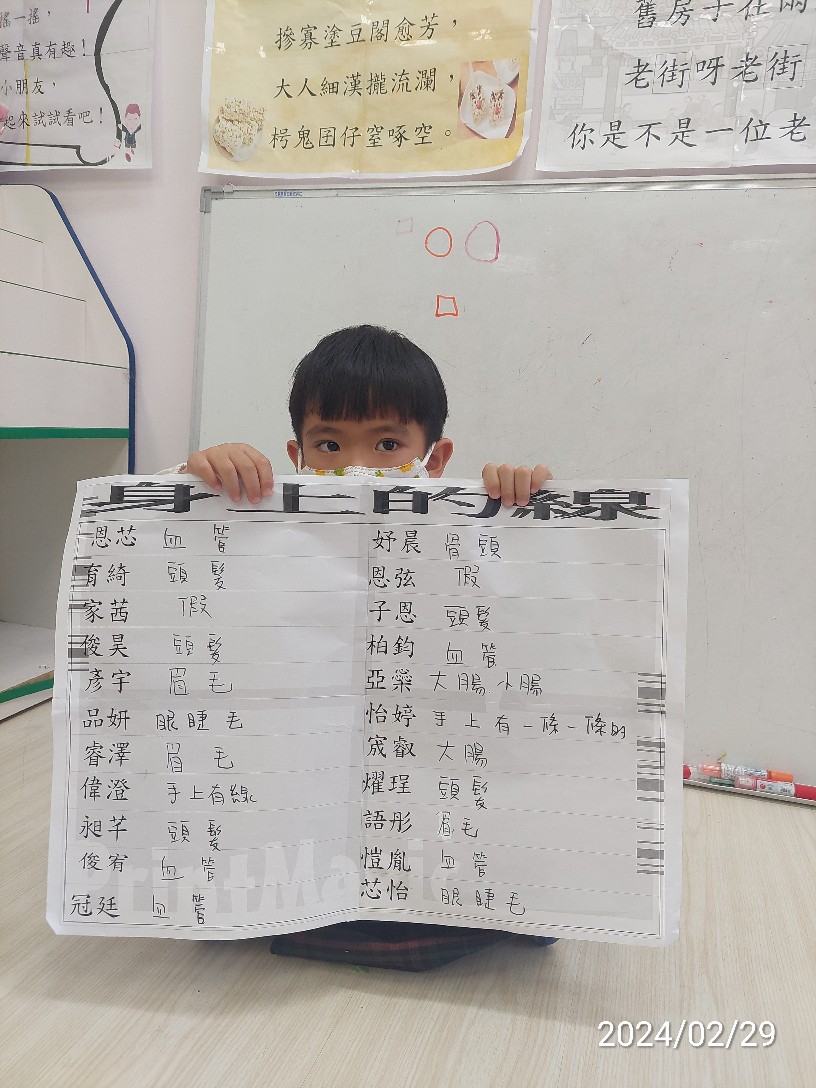 搖一搖，
聲音真有趣！
小朋友，
起來試試看吧！
摻寡塗豆閣愈芳，
大人細漢攏流瀾，
枵鬼囝仔窒啄空。
舊房子在兩
老街呀老街
你是不是一位老
身上的線
恩芯 血管
育綺 頭髮
家茜 假
俊昊 頭髮
彥宇 眉毛
品妍 眼睫毛
睿澤 眉毛
偉澄 手上有線
昶芊 頭髮
俊宥 血管
冠廷 血管
妤晨 骨頭
恩弦 假
子恩 頭髮
柏鈞 血管
亞蘂 大腸小腸
怡婷 手上有一條一條的
宬叡 大腸
燿珵 頭髮
語彤 眉毛
愷胤 血管
芯怡 眼睫毛
PrintMa
2024/02/29